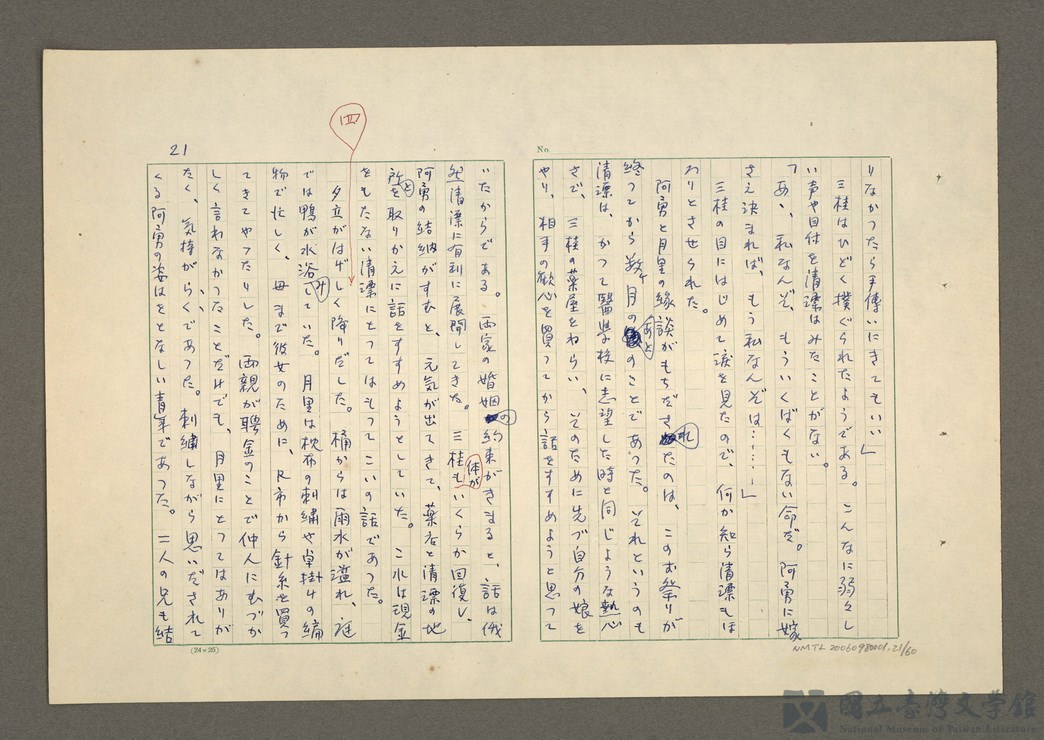 りなかつたら手傳いにきてもいい」
三桂はひどく撲ぐられたようである。こんなに弱々し
い声や目付を清漂はみたことがない。
「あゝ、私なんぞ、もういくばくもない命だ。阿勇に嫁
さえ決まれば、もう私なんぞは……」
三桂の目にはじめて涙を見たので、何か知ら清漂もほ
ろりとさせられた。
阿勇と月里の縁談がもちだされたのは、このお祭りが
終つてから数ヶ月のあとのことであつた。それというのも
清漂は、かつて醫學校に志望した時と同じような熱心
さで、三桂の薬屋をねらい、そのために先づ自分の娘を
やり、相手の歓心を買つてから話をすすめようと思つて
いたからである。両家の婚姻の約束がきまると、話は俄
然清漂に有利に展開してきた。三桂も体がいくらか回復し、
阿勇の結納がすむと、元気が出てきて、薬店と清漂の地
所とを取りかえに話をすすめようとしていた。これは現金
をもたない清漂にとつてはもつてこいの話であつた。
四
夕立がはげしく降りだした。桶からは雨水が溢れ、庭
では鴨が水浴みていた。月里は枕布の刺繍や卓掛けの編
物で忙しく、母まで彼女のために、R市から針糸を買つ
てきてやつたりした。両親が聘金のことで仲人にむづか
しく言わなかつたことだけでも、月里にとつてはありが
たく、気持がらくであつた。刺繍しながら思いだされて
くる阿勇の姿はをとなしい青年であつた。二人の兄も結
21
No.
(24×25)
NMTL 20060980001.21/60
國立臺灣文學館
National Museum of Taiwan Literature